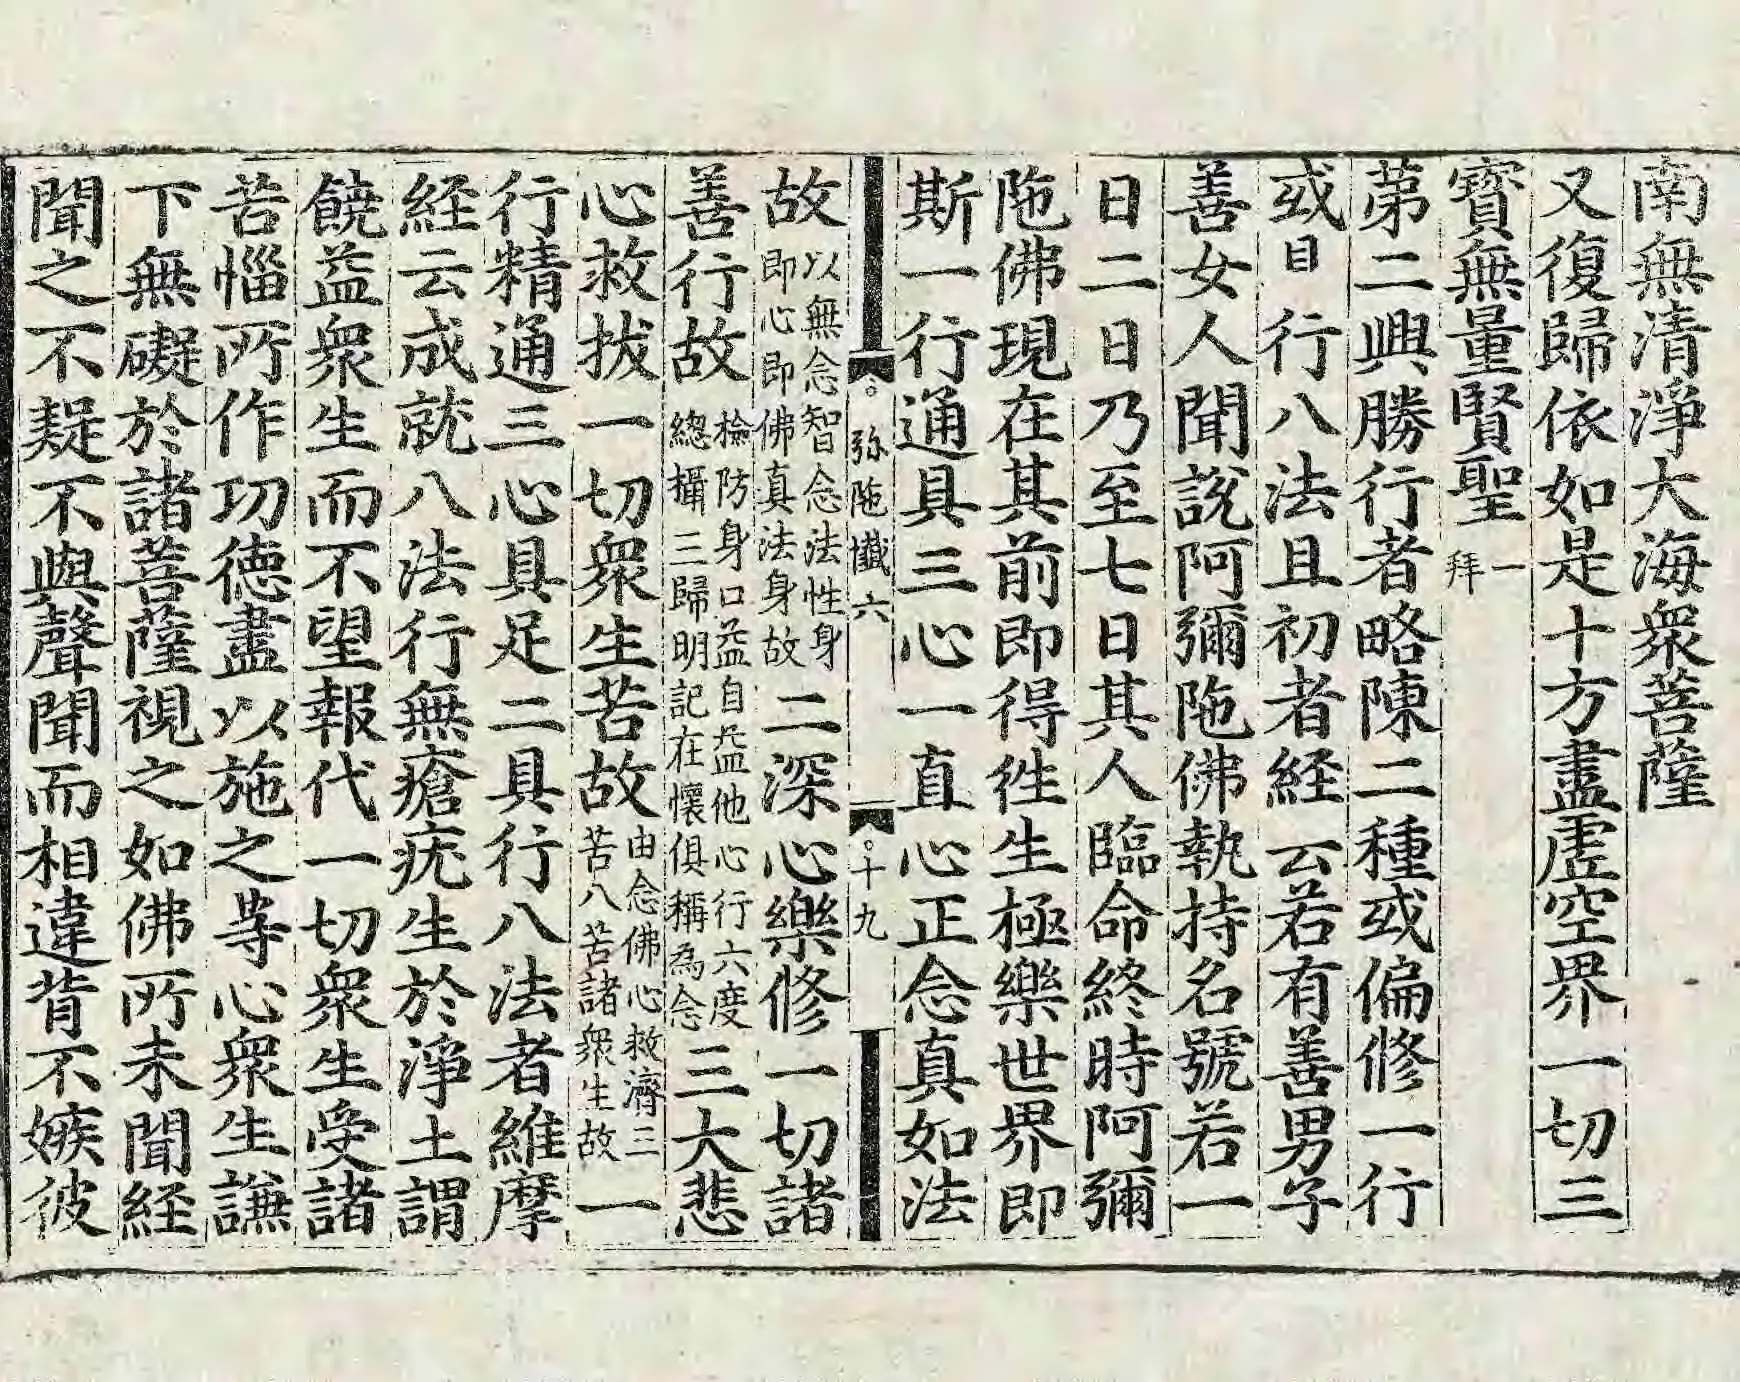 南無清淨大海衆菩薩
又復歸依如是十方盡虛空界一切三
寶無量賢聖一拜
苐二興勝行者略陳二種或偏修一行
或目行八法且初者経云若有善男子
善女人聞說阿彌陁佛執持名號若一
日二日乃至七日其人臨命終時阿彌
陁佛現在其前即得徃生極樂世界即
斯一行通具三心一直心正念真如法
弥陁懺六 十九
故以無念智念法性身即心即佛真法身故二深心樂修一切諸
善行故檢防身口益自益他心行六度緫攝三歸明記在懷俱稱為念三大悲
心救拔一切衆生苦故由念佛心救濟三苦八苦諸衆生故一
行精通三心具足二具行八法者維摩
経云成就八法行無瘡疣生於淨土謂
饒益衆生而不望報代一切衆生受諸
苦惱所作功德盡以施之等心衆生謙
下無礙於諸菩薩視之如佛所未聞経
聞之不疑不與聲聞而相違背不嫉彼